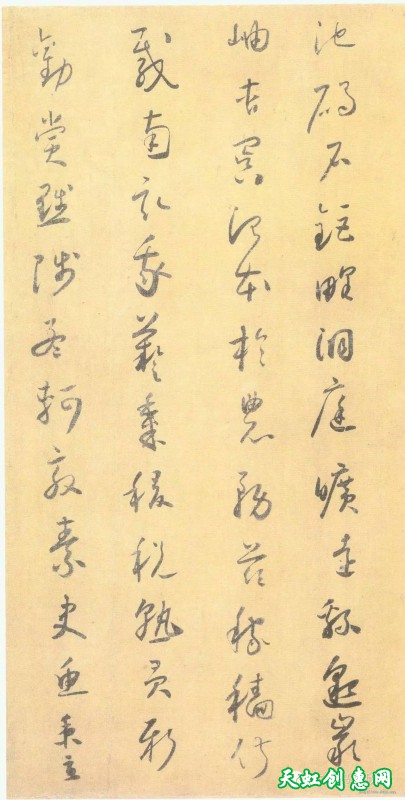 池碣石鉅野洞庭曠遠緜邈巖
岫杳冥治本於農務茲稼穡俶
載南畝我藝黍稷稅熟貢新
勸賞黜陟孟軻敦素史魚秉直
天虹创惠网